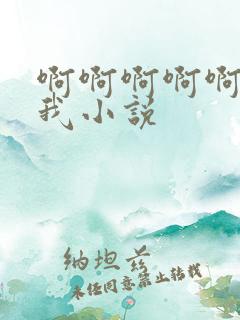 啊啊啊啊啊
我小说
纳坦兹
未经同意禁止转载